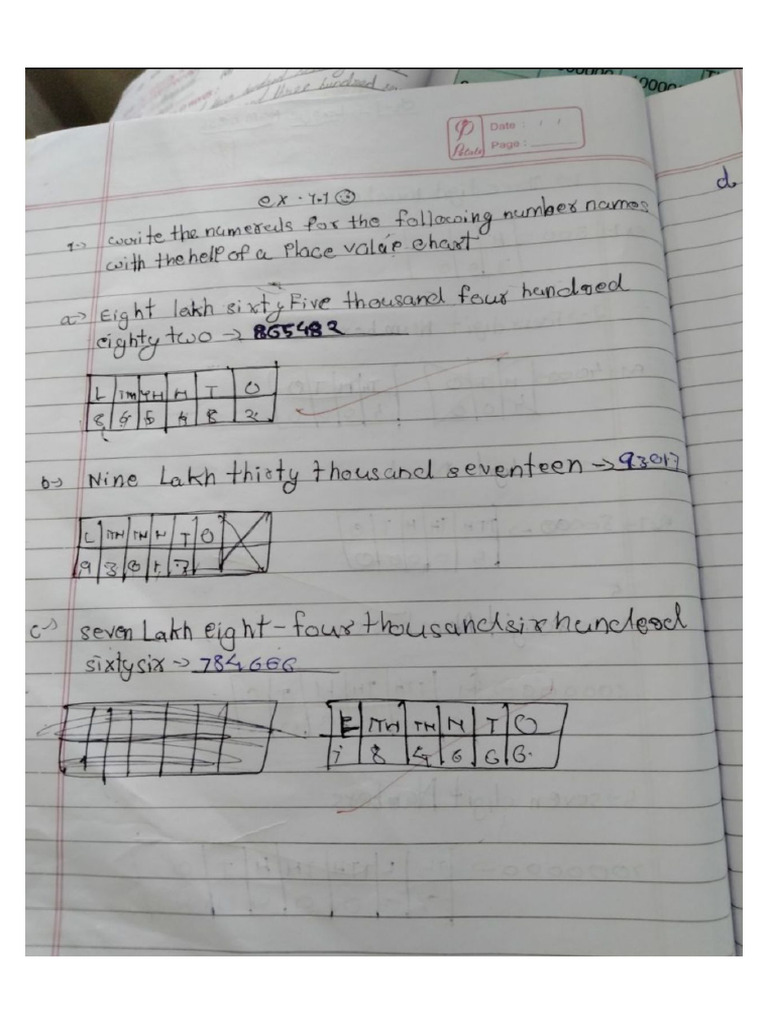 three hundred
10000
Date :
Page :
ex. 1.1
1-> write the numerals for the following number names
with the help of a Place value chart
a-> Eight lakh sixty Five thousand four handred
eighty two -> 865482
L TTH TH H T O
8 6 5 4 8 2
b-> Nine Lakh thirty thousand seventeen -> 93017
L TTH TH H T O
9 3 0 1 7
c-> seven Lakh eight-four thousand six hundred
sixty six -> 784666
L TTH TH H T O
7 8 4 6 6 6
d